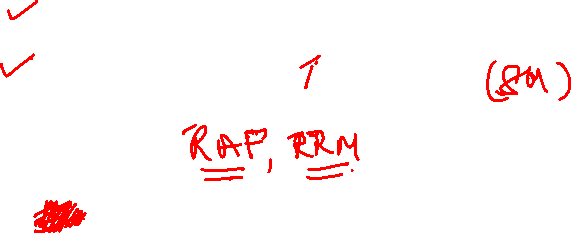 (SM)
RAP, RRM